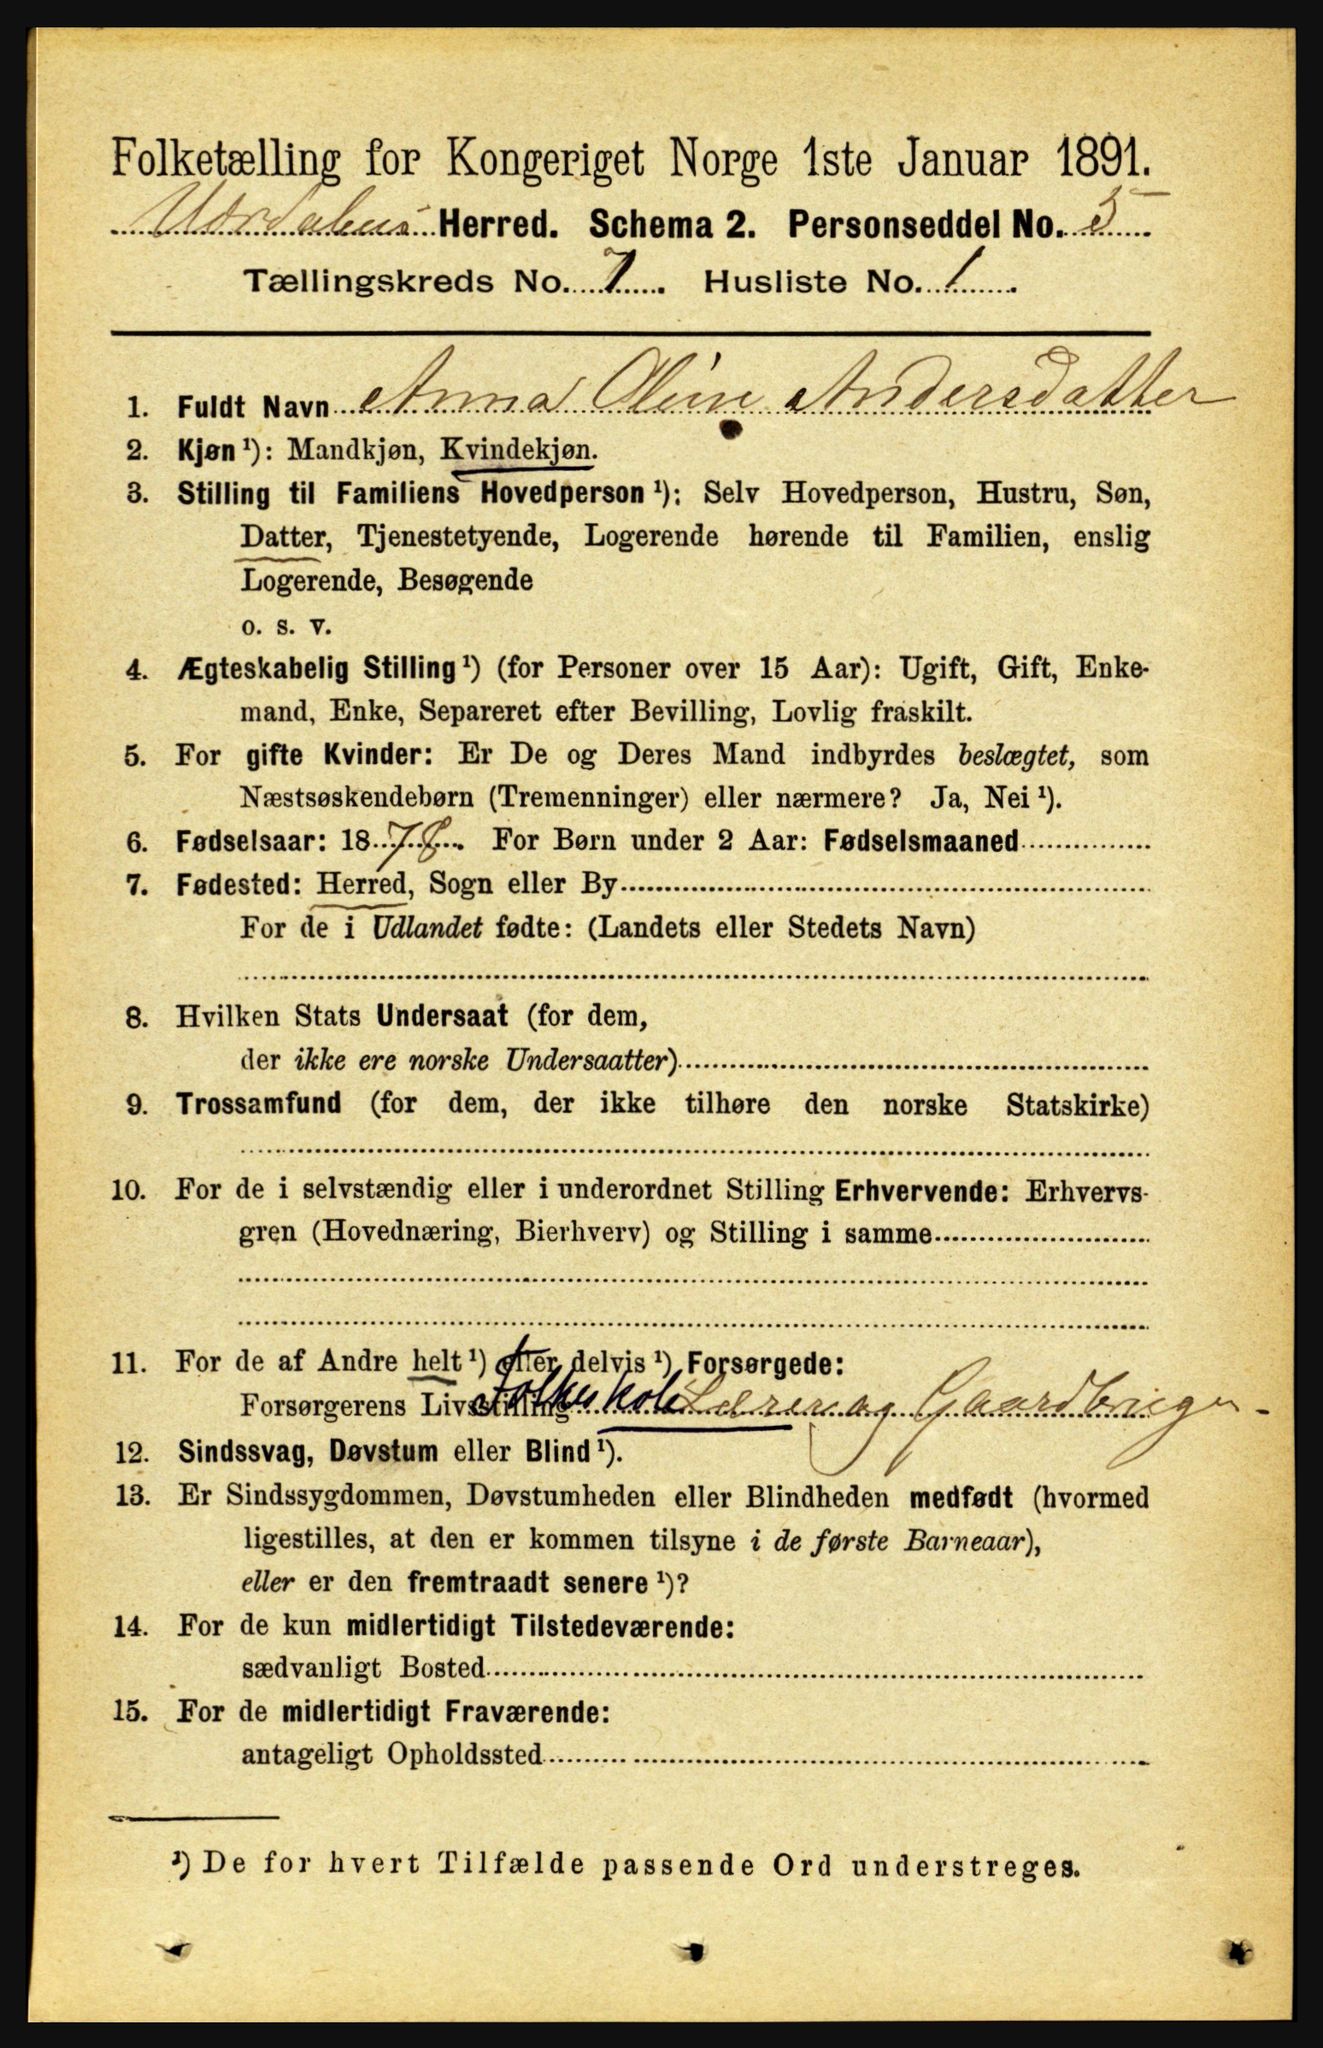 Folketælling for Kongeriget Norge 1ste Januar 1891.
Herred. Schema 2. Personseddel No. 5
Tællingskreds No. 7. Husliste No. 1
1. Fuldt Navn Anna Oline Andersdatter
2. Kjøn¹): Mandkjøn, Kvindekjøn.
3. Stilling til Familiens Hovedperson¹): Selv Hovedperson, Hustru, Søn,
Datter, Tjenestetyende, Logerende hørende til Familien, enslig
Logerende, Besøgende
o. s. v.
4. Ægteskabelig Stilling¹) (for Personer over 15 Aar): Ugift, Gift, Enke-
mand, Enke, Separeret efter Bevilling, Lovlig fraskilt.
5. For gifte Kvinder: Er De og Deres Mand indbyrdes beslægtet, som
Næstsøskendebørn (Tremenninger) eller nærmere? Ja, Nei¹).
6. Fødselsaar: 1878. For Børn under 2 Aar: Fødselsmaaned
7. Fødested: Herred, Sogn eller By
For de i Udlandet fødte: (Landets eller Stedets Navn)
8. Hvilken Stats Undersaat (for dem,
der ikke ere norske Undersaatter)
9. Trossamfund (for dem, der ikke tilhøre den norske Statskirke)
10. For de i selvstændig eller i underordnet Stilling Erhvervende: Erhvervs-
gren (Hovednæring, Bierhverv) og Stilling i samme
11. For de af Andre helt¹) eller delvis¹) Forsørgede:
Forsørgerens Livsstilling Folkeskole Lærer og Gaardbruger
12. Sindssvag, Døvstum eller Blind¹).
13. Er Sindssygdommen, Døvstumheden eller Blindheden medfødt (hvormed
ligestilles, at den er kommen tilsyne i de første Barneaar),
eller er den fremtraadt senere¹)?
14. For de kun midlertidigt Tilstedeværende:
sædvanligt Bosted
15. For de midlertidigt Fraværende:
antageligt Opholdssted
¹) De for hvert Tilfælde passende Ord understreges.